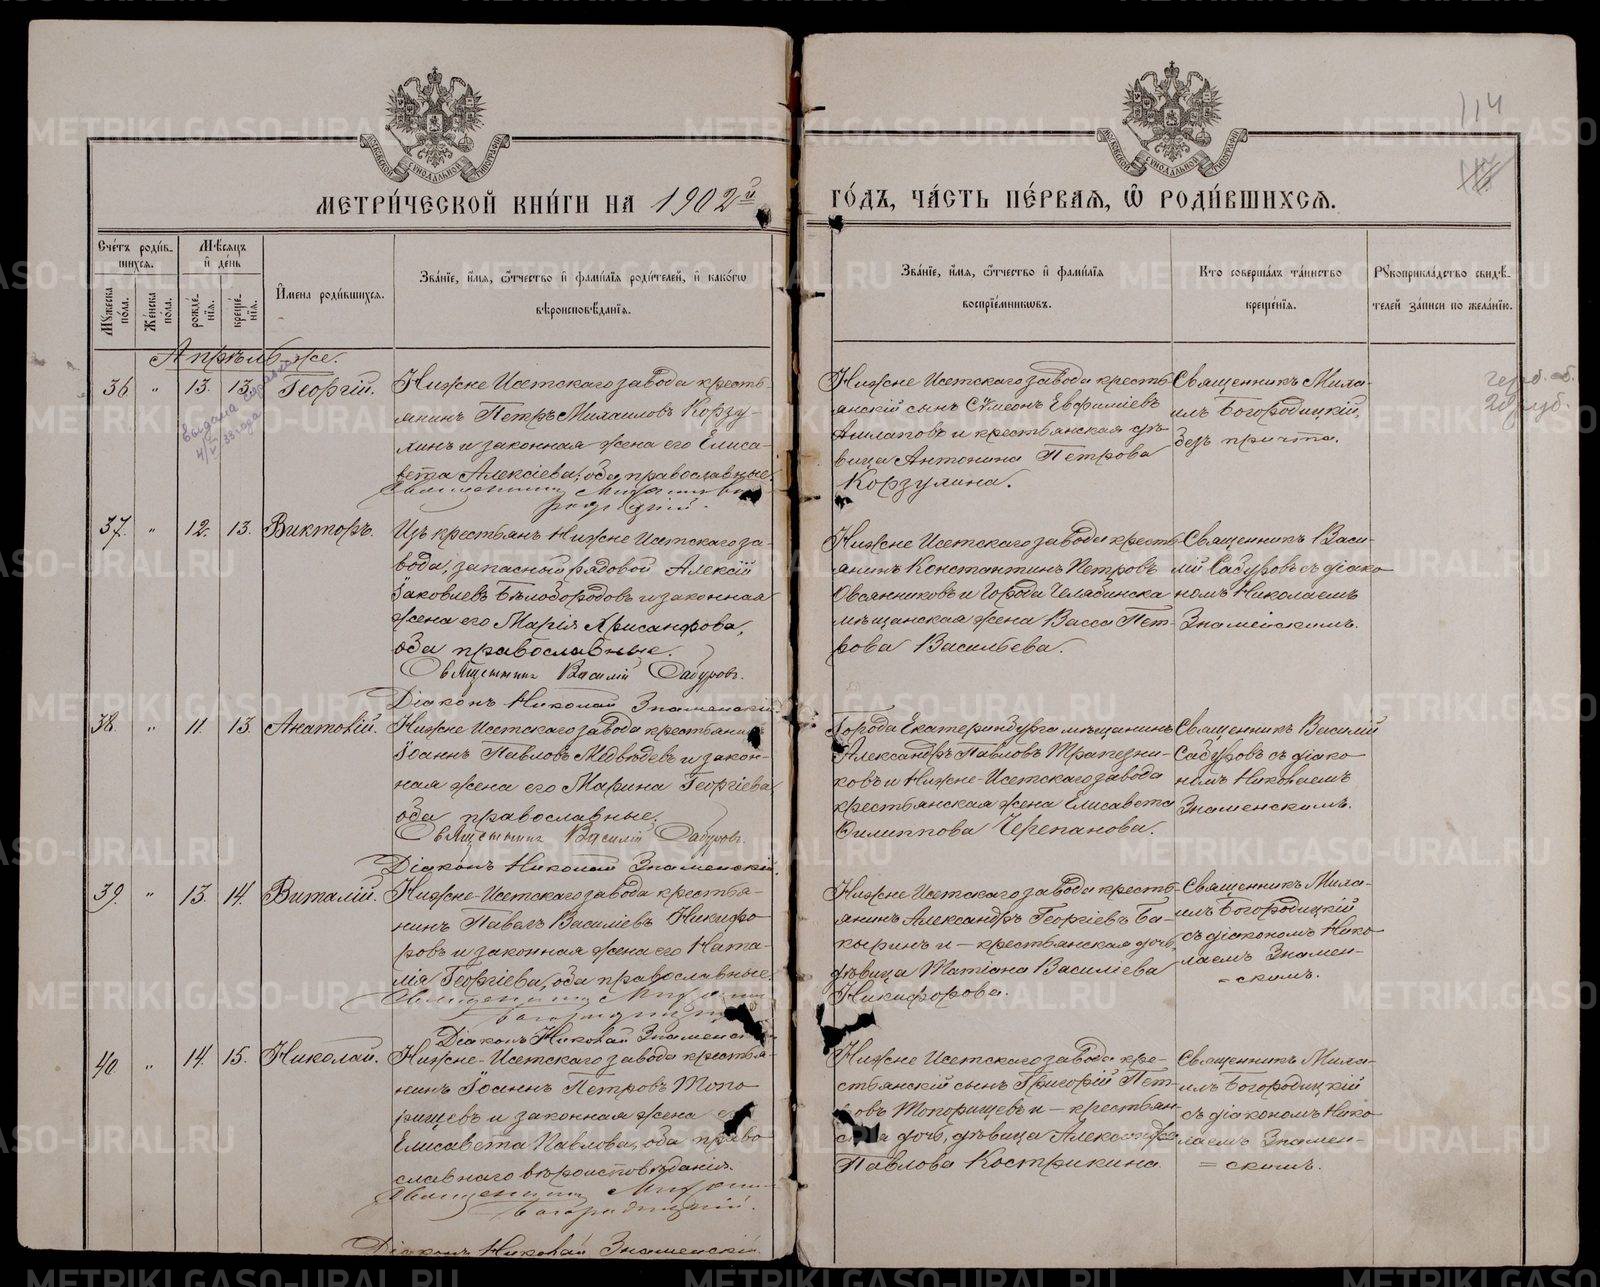 МЕТРИ́ЧЕСКОЙ КНИ́ГИ НА 1902й ГО́ДЪ, ЧА́СТЬ ПЕ́РВАЯ, Ѿ РОДИ́ВШИХСЯ.
114
Сче́тъ роди́в-
шихся.
Мѣ́сяцъ
и де́нь
Мꙋ́жеска по́ла.
Же́нска по́ла.
рожде́-нїя.
креще́-нїя.
И́мена роди́вшихся.
Зва́нїе, и́мя, ѻ́тчество и фами́лїя роди́телей, и како́гѡ
вѣроисповѣ́данїя.
Зва́нїе, и́мя, ѻ́тчество и фами́лїя
воспрїе́мниковъ.
Кто соверша́лъ та́инство
креще́нїя.
Рꙋкоприкла́дство свидѣ́-
телей за́писи по жела́нїю.
Апрѣль-же.
36 " 13. 13. Георгій.
выдана справка
4/V 33 года
Нижне Исетскаго завода кресть-
янинъ Петръ Михаиловъ Корзу-
хинъ и законная жена его Елиса-
вета Алексіева, оба православные.
Священникъ Михаилъ Бого-
родицкій.
Нижне Исетскаго завода кресть-
янскій сынъ Сѵмеонъ Евфиміевъ
и крестьянская дѣ-
вица Антонина Петрова
Корзухина.
Священникъ Миха-
илъ Богородицкій,
безъ причта.
герб. сб.
20 руб.
37. " 12. 13. Викторъ.
Изъ крестьянъ Нижне Исетскаго за-
вода, запасный рядовой Алексій
Іаковлевъ Бѣлобородовъ и законная
жена его Марія Хрисанфова,
оба православные.
Священникъ Василій Сабуровъ.
Діаконъ Николай Знаменскій.
Нижне Исетскаго завода кресть-
янинъ Константинъ Петровъ
Овсянниковъ и города Челябинска
мѣщанская жена Васса Пет-
рова Васильева.
Священникъ Васи-
лій Сабуровъ съ діако-
номъ Николаемъ
Знаменскимъ.
38. " 11. 13. Анатолій.
Нижне Исетскаго завода крестьянинъ
Іоаннъ Павловъ Медвѣдевъ и закон-
ная жена его Марина Георгіева,
оба православные.
Священникъ Василій Сабуровъ.
Діаконъ Николай Знаменскій.
Города Екатеринбурга мѣщанинъ
Александръ Павловъ Трапезни-
ковъ и Нижне-Исетскаго завода
крестьянская жена Елисавета
Филиппова Черепанова.
Священникъ Василій
Сабуровъ съ діако-
номъ Николаемъ
Знаменскимъ.
39. " 13. 14. Виталій.
Нижне-Исетскаго завода крестья-
нинъ Павелъ Василіевъ Никифо-
ровъ и законная жена его Ната-
лія Георгіева, оба православные.
Священникъ Михаилъ
Богородицкій
Діаконъ Николай Знаменскій
Нижне-Исетскаго завода кресть-
янинъ Александръ Георгіевъ Ба-
кыринъ и – крестьянская дочь,
дѣвица Татіана Василіева
Никифорова.
Священникъ Миха-
илъ Богородицкій
съ діакономъ Нико-
лаемъ Знамен-
=скимъ.
40. " 14. 15. Николай.
Нижне-Исетскаго завода крестья-
нинъ Іоаннъ Петровъ Топо-
рищевъ и законная жена его
Елисавета Павлова, оба право-
славнаго вѣроисповѣданія.
Священникъ Михаилъ
Богородицкій.
Діаконъ Николай Знаменскій.
Нижне Исетскаго завода кре-
стьянскій сынъ Григорій Пет-
ровъ Топорищевъ и – крестьян-
ская дочь, дѣвица Александра
Павлова Кострикина.
Священникъ Миха-
илъ Богородицкій
съ діакономъ Нико-
лаемъ Знамен-
=скимъ.